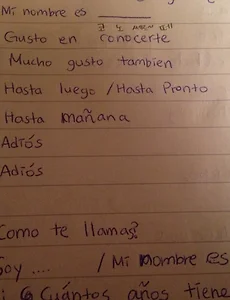 Mi nombre es ______
Gusto en conocerte
Mucho gusto tambien
Hasta luego / Hasta Pronto
Hasta mañana
Adiós
Adiós
Como te llamas?
Soy .... / Mi nombre es
Cuántos años tiene